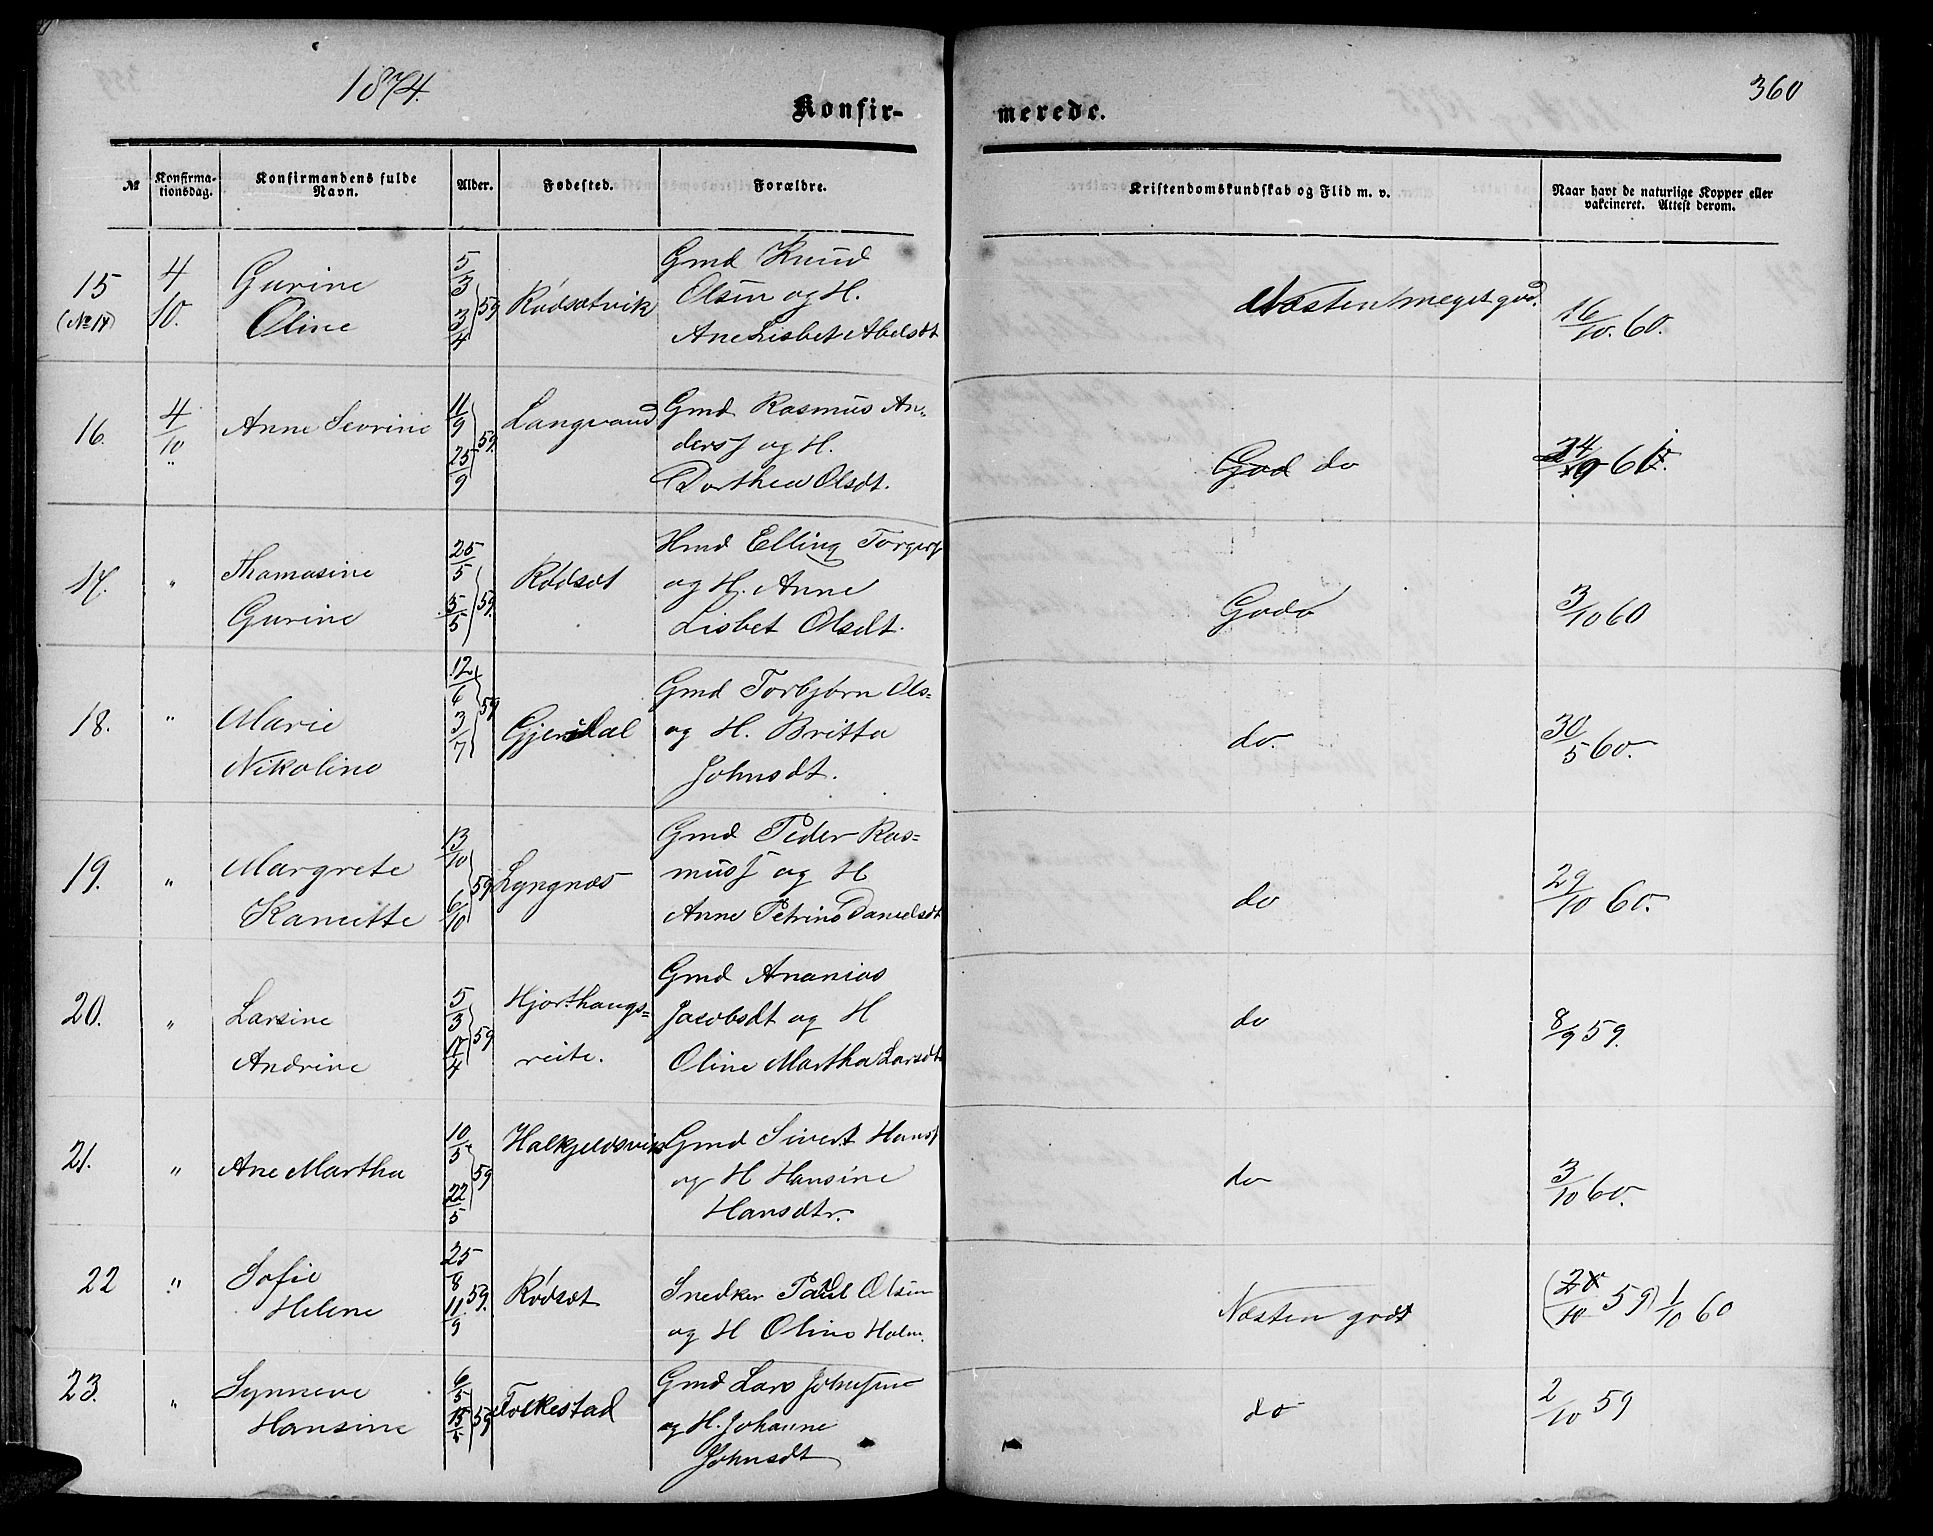 1874.
360
Konfir-
merede.
№
Konfirma-
tionsdag.
Konfirmandens fulde
Navn.
Alder.
Fødested.
Forældre.
Kristendomskundskab og Flid m. v.
Naar havt de naturlige Kopper eller
vakcineret. Attest derom.
15 (№ 14) 4/10. Gurine Oline 5/3 3/4 59 Rødsætvik
Gmd Knud
Olsen og H.
Ane Lisbet Abelsdt
Næsten meget god. 16/10. 60.
16. 4/10 " Anne Sevrine 11/9 25/9 59. Langvand
Gmd Rasmus An-
ders J og H.
Dorthea Olsdt.
God do 24/9 61.
17. " Thamasine Gurine 25/5 5/5 59. Rødsæt
Hmd Elling Torgersf
og H. Anne
Lisbet Olsdt.
Godo 3/10 60
18. " Marie Nikoline 12/6 3/7 59 Gjerdal
Gmd Torbjørn Ols-
og H. Britta
Johnsdt.
do. 30/5 60.
19. " Margrete Kanutte 13/10 6/10 59 Lyngnæs
Gmd Peder Ras-
musf og H
Anne Petrine Danielsdt
do 29/10 60.
20. " Larsine Andrine 5/3 17/4 59 Hjorthaugs-
reite.
Gmd Ananias
Jacobsdt og H
Oline Martha Larsdt
do 8/9 59.
21. " Ane Martha 10/5 22/5 59 Halkjeldsvik
Gmd Sivert Hansf
og H Hansine
Hansdtr.
do 3/10 60.
22 " Sofie Helene 25/8 11/9 59. Rødsæt
Snedker Paul Olsen
og H Oline Holm.
Næsten godt (20/10 59) 1/10 60
23. " Synneve Hansine 6/5 15/5 59 Folkestad
Gmd Lars Johnsen
og H. Johanne
Johnsdt
do 2/10 59